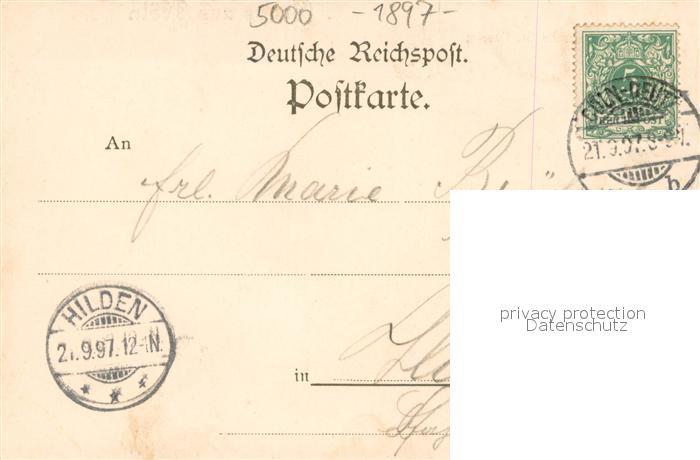 5000 -1897-
Deutsche Reichspost.
Postkarte.
An
frl. Marie
CÖLN-DEUTZ
21.9.97.8-9V.
b
HILDEN
21.9.97.12-1N.
in
privacy protection
Datenschutz